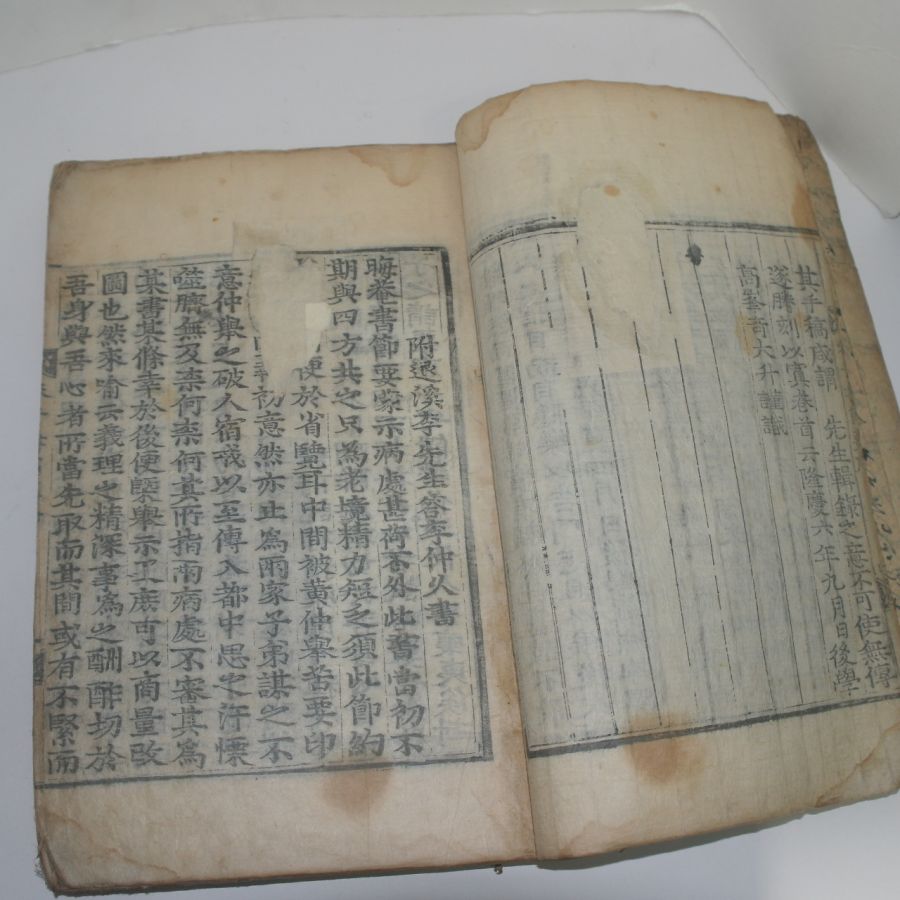 其手稿咸謂 先生輯錄之意不可使無傳
遂謄刻以寘卷首云隆慶六年九月日後學
高峯奇大升謹識
附退溪李先生答李仲久書
晦菴書節要蒙示病處甚荷不外此書當初不
期與四方共之只為老境精力短乏須此節約
便於省覽耳中間被黃仲擧苦要印
初意然亦止為兩家子弟謀之不
意仲擧之破人宿戒以至傳入都中思之汗慄
噬臍無及柰何柰何其所指南病處不審其爲
某書某條幸於後便槩擧示及庶可以商量改
圖也然來喻云義理之精深事爲之酬酢切於
吾身與吾心者所當先取而其間或有不緊而